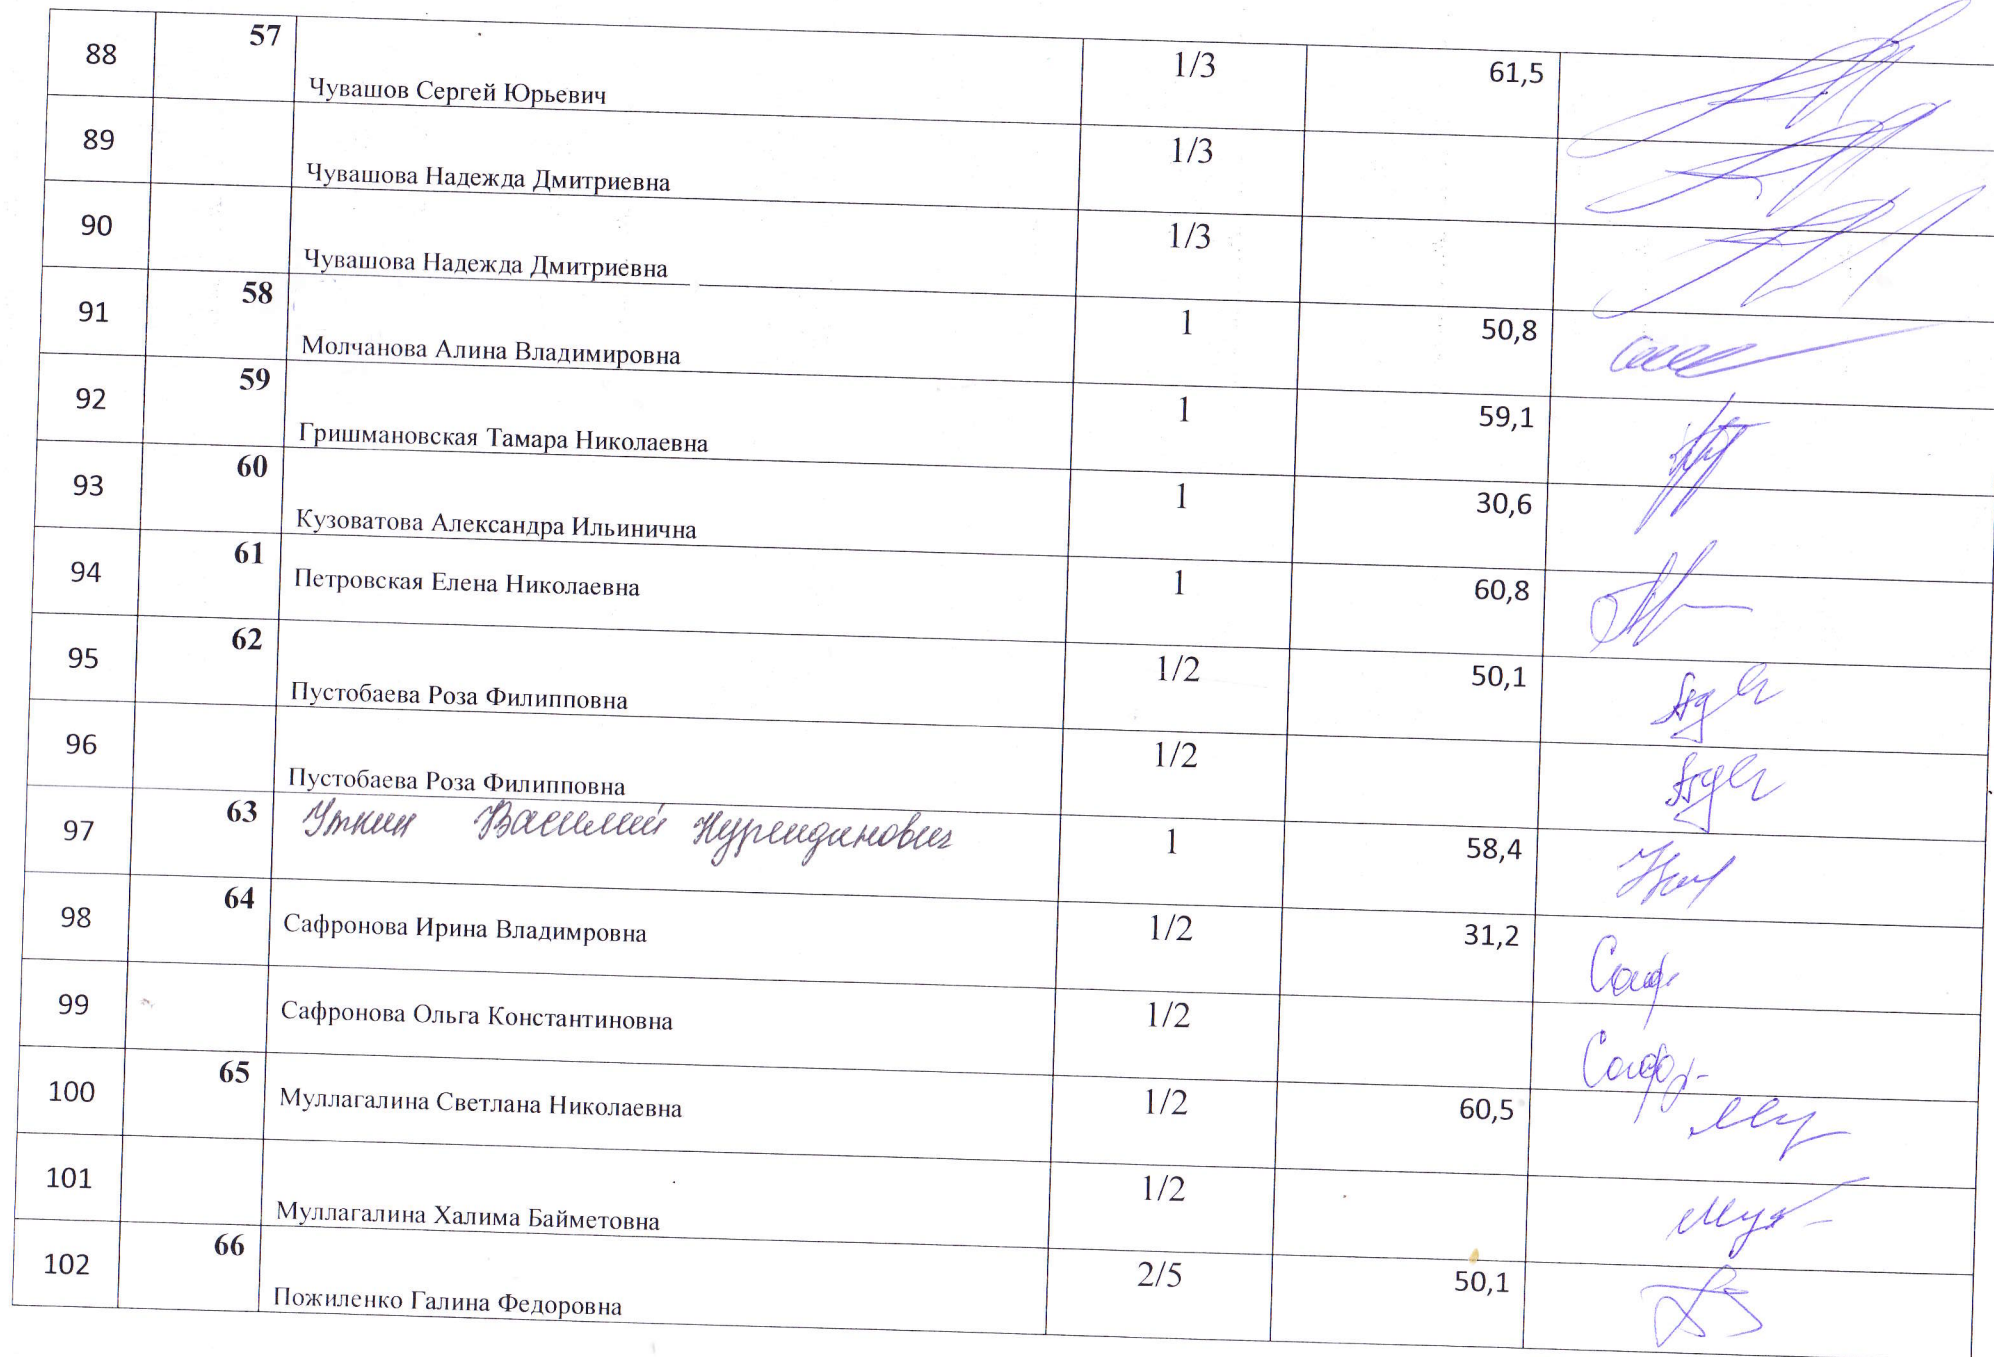 88 57 Чувашов Сергей Юрьевич 1/3 61,5
89 Чувашова Надежда Дмитриевна 1/3
90 Чувашова Надежда Дмитриевна 1/3
91 58 Молчанова Алина Владимировна 1 50,8
92 59 Гришмановская Тамара Николаевна 1 59,1
93 60 Кузоватова Александра Ильинична 1 30,6
94 61 Петровская Елена Николаевна 1 60,8
95 62 Пустобаева Роза Филипповна 1/2 50,1
96 Пустобаева Роза Филипповна 1/2
97 63 Уткин Василий Нуридинович 1 58,4
98 64 Сафронова Ирина Владимровна 1/2 31,2
99 Сафронова Ольга Константиновна 1/2
100 65 Муллагалина Светлана Николаевна 1/2 60,5
101 Муллагалина Халима Байметовна 1/2
102 66 Пожиленко Галина Федоровна 2/5 50,1